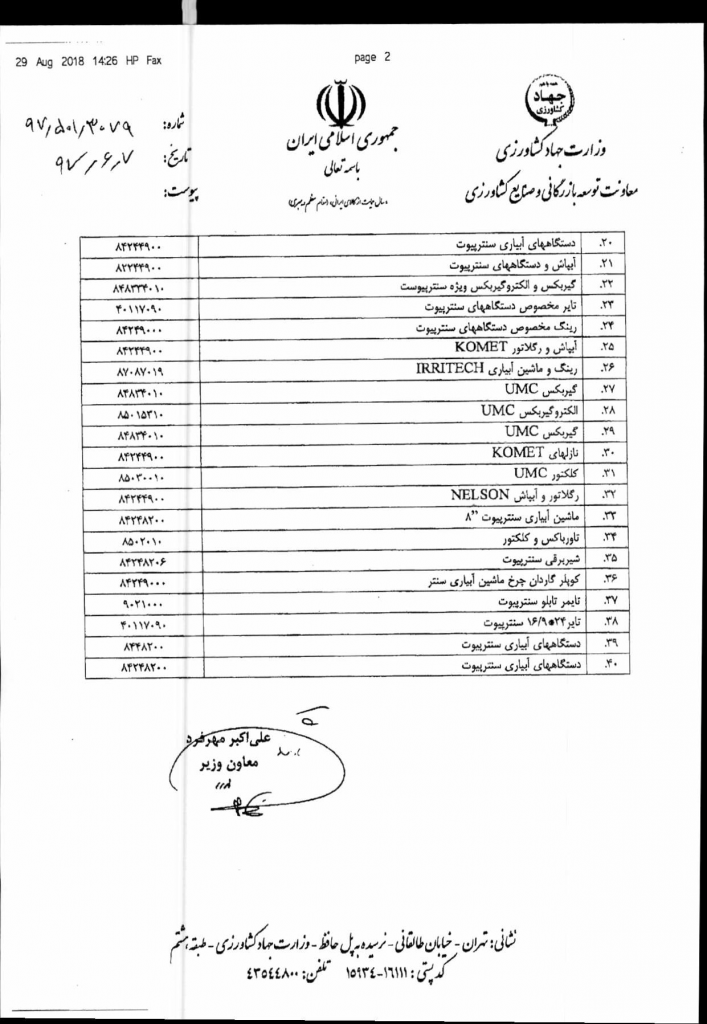 29 Aug 2018 14:26 HP Fax
page 2
جهاد
کشاورزی
وزارت جهاد کشاورزی
معاونت توسعه بازرگانی و صنایع کشاورزی
جمهوری اسلامی ایران
باسمه تعالی
شماره: ۹۷/۵۰۱/۳۰۷۹
تاریخ: ۹۷/۶/۷
پیوست:
۲۰. دستگاههای آبیاری سنترپیوت ۸۴۲۴۴۹۰۰
۲۱. آبپاش و دستگاههای سنترپیوت ۸۲۲۴۴۹۰۰
۲۲. گیربکس و الکتروگیربکس ویژه سنترپیوست ۸۴۸۳۳۴۰۱۰
۲۳. تایر مخصوص دستگاههای سنترپیوت ۴۰۱۱۷۰۹۰
۲۴. رینگ مخصوص دستگاههای سنترپیوت ۸۴۲۴۹۰۰۰
۲۵. آبپاش و رگلاتور KOMET ۸۴۲۴۴۹۰۰
۲۶. رینگ و ماشین آبیاری IRRITECH ۸۷۰۸۷۰۱۹
۲۷. گیربکس UMC ۸۴۸۳۴۰۱۰
۲۸. الکتروگیربکس UMC ۸۵۰۱۵۳۱۰
۲۹. گیربکس UMC ۸۴۸۳۴۰۱۰
۳۰. نازلهای KOMET ۸۴۲۴۴۹۰۰
۳۱. کلکتور UMC ۸۵۰۳۰۰۱۰
۳۲. رگلاتور و آبپاش NELSON ۸۴۲۴۴۹۰۰
۳۳. ماشین آبیاری سنترپیوت ۸” ۸۴۲۴۸۲۰۰
۳۴. تاورباکس و کلکتور ۸۵۰۲۰۱۰
۳۵. شیربرقی سنترپیوت ۸۴۲۴۸۲۰۶
۳۶. کوپلر گاردان چرخ ماشین آبیاری سنتر ۸۴۲۴۹۰۰۰
۳۷. تایمر تابلو سنترپیوت ۹۰۲۱۰۰۰
۳۸. تایر ۲۴*۱۶/۹ سنترپیوت ۴۰۱۱۷۰۹۰
۳۹. دستگاههای آبیاری سنترپیوت ۸۴۴۸۲۰۰
۴۰. دستگاههای آبیاری سنترپیوت ۸۴۲۴۸۲۰۰
علی‌اکبر مهرفرد
معاون وزیر
نشانی: تهران - خیابان طالقانی - نرسیده به پل حافظ - وزارت جهاد کشاورزی - طبقه هشتم
کد پستی: ۱۶۱۱۱-۱۵۹۳۴ تلفن: ۴۳۵۴۴۸۰۰